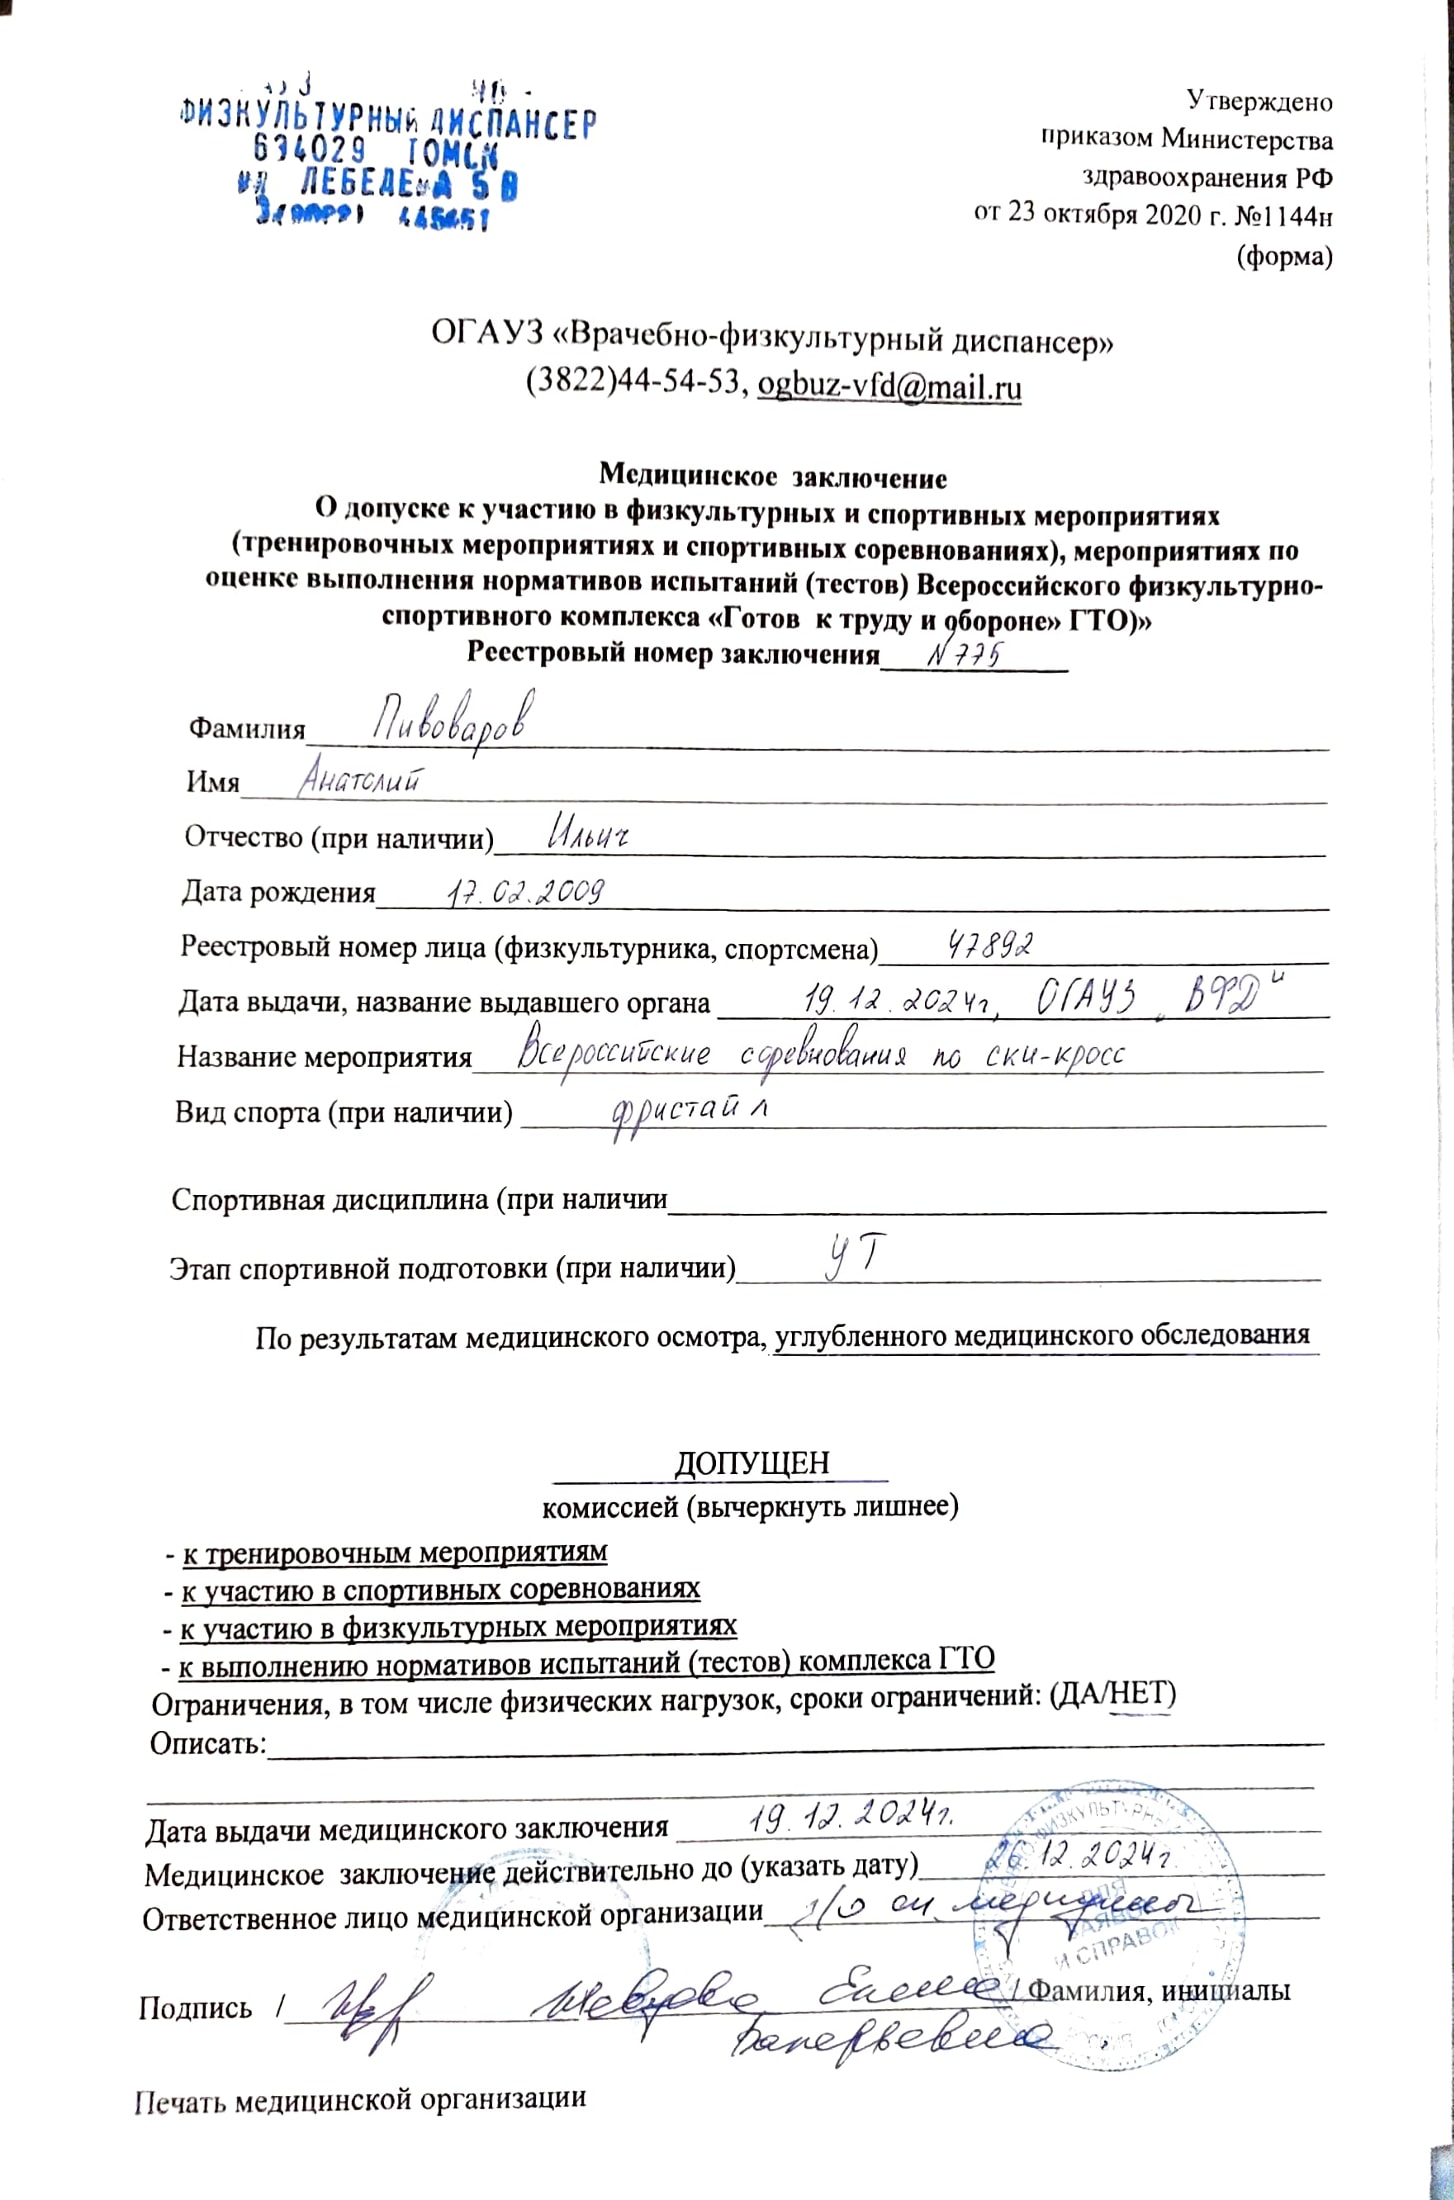 ФИЗКУЛЬТУРНЫЙ ДИСПАНСЕР
634029 ТОМСК
ул ЛЕБЕДЕВА 5 В
Утверждено
приказом Министерства
здравоохранения РФ
от 23 октября 2020 г. №1144н
(форма)
ОГАУЗ «Врачебно-физкультурный диспансер»
(3822)44-54-53, ogbuz-vfd@mail.ru
Медицинское заключение
О допуске к участию в физкультурных и спортивных мероприятиях
(тренировочных мероприятиях и спортивных соревнованиях), мероприятиях по
оценке выполнения нормативов испытаний (тестов) Всероссийского физкультурно-
спортивного комплекса «Готов к труду и обороне» ГТО)»
Реестровый номер заключения N 775
Фамилия Пивоваров
Имя Анатолий
Отчество (при наличии) Ильич
Дата рождения 17.02.2009
Реестровый номер лица (физкультурника, спортсмена) 47892
Дата выдачи, название выдавшего органа 19.12.2024г, ОГАУЗ „ВФД"
Название мероприятия Всероссийские соревнования по ски-кросс
Вид спорта (при наличии) фристайл
Спортивная дисциплина (при наличии
Этап спортивной подготовки (при наличии) УТ
По результатам медицинского осмотра, углубленного медицинского обследования
ДОПУЩЕН
комиссией (вычеркнуть лишнее)
- к тренировочным мероприятиям
- к участию в спортивных соревнованиях
- к участию в физкультурных мероприятиях
- к выполнению нормативов испытаний (тестов) комплекса ГТО
Ограничения, в том числе физических нагрузок, сроки ограничений: (ДА/НЕТ)
Описать:
Дата выдачи медицинского заключения 19.12.2024г.
Медицинское заключение действительно до (указать дату) 26.12.2024г.
Ответственное лицо медицинской организации
ДЛЯ
И СПРАВОК
Подпись / Елена / Фамилия, инициалы
Валерьевна
Печать медицинской организации